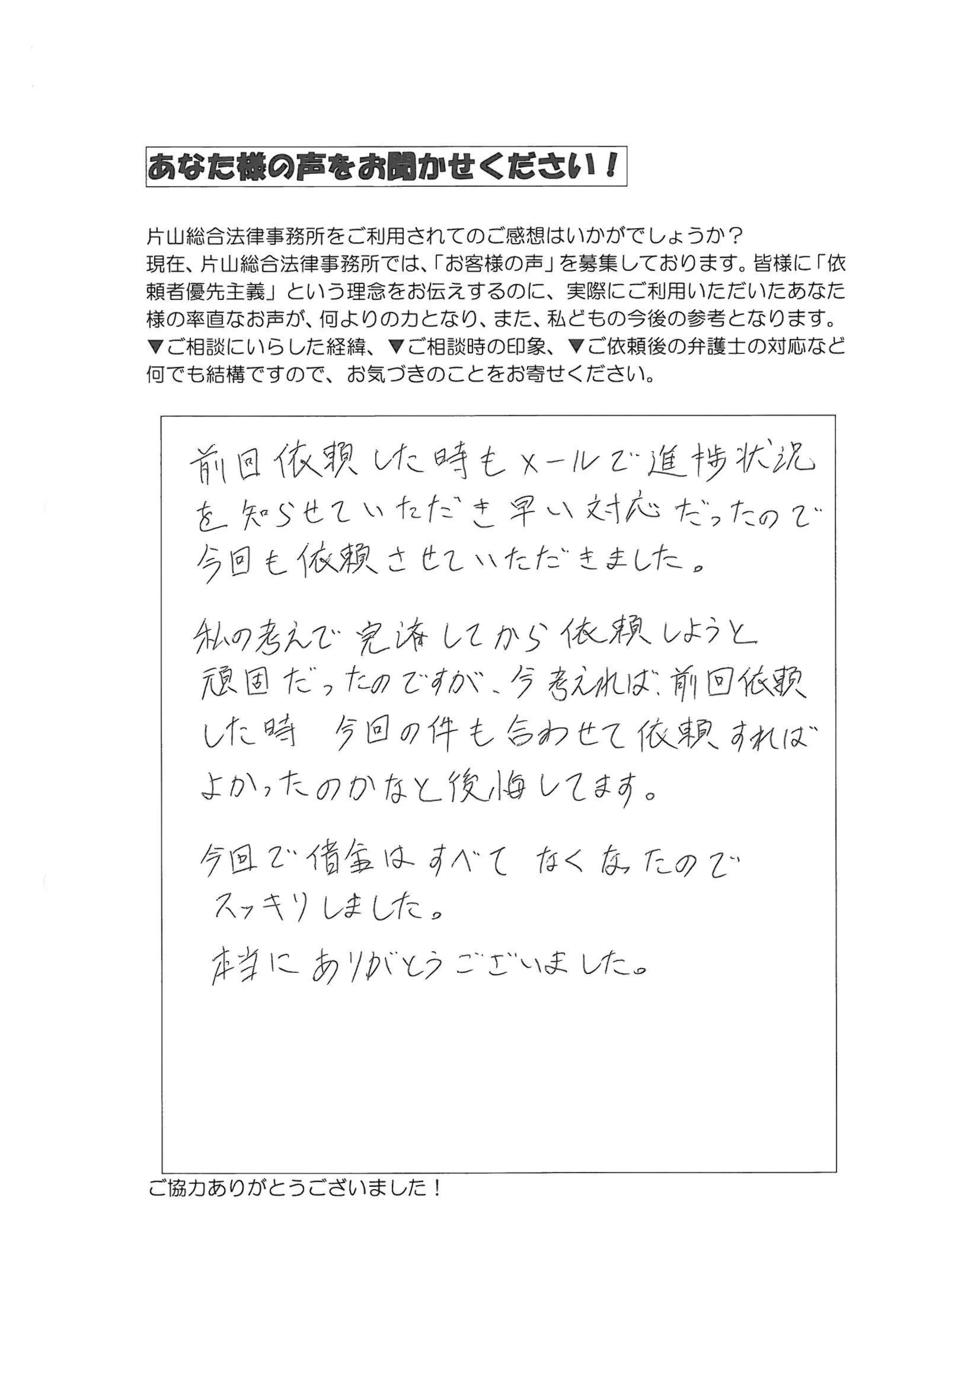 あなた様の声をお聞かせください!
片山総合法律事務所をご利用されてのご感想はいかがでしょうか?
現在、片山総合法律事務所では、「お客様の声」を募集しております。皆様に「依
頼者優先主義」という理念をお伝えするのに、実際にご利用いただいたあなた
様の率直なお声が、何よりの力となり、また、私どもの今後の参考となります。
▼ご相談にいらした経緯、▼ご相談時の印象、▼ご依頼後の弁護士の対応など
何でも結構ですので、お気づきのことをお寄せください。
前回依頼した時もメールで進捗状況
を知らせていただき早い対応だったので
今回も依頼させていただきました。
私の考えで完済してから依頼しようと
頑固だったのですが、今考えれば、前回依頼
した時 今回の件も合わせて依頼すれば
よかったのかなと後悔してます。
今回で借金はすべて なくなったので
スッキリしました。
本当にありがとうございました。
ご協力ありがとうございました!